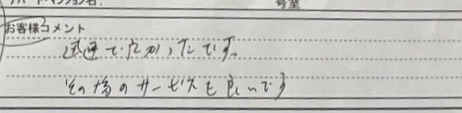 号室
お客様コメント
迅速でよかったです。
その場のサービスも良いです